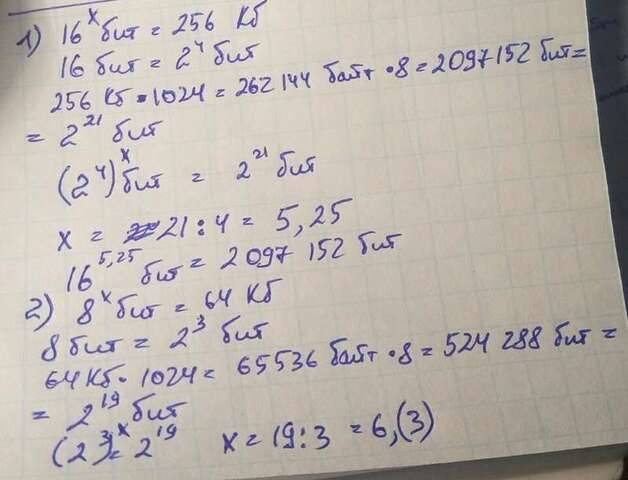 1) 16^x бит = 256 Кб
16 бит = 2^4 бит
256 Кб • 1024 = 262 144 байт • 8 = 2097152 бит =
= 2^21 бит
(2^4)^x бит = 2^21 бит
x = 21 : 4 = 5,25
16^5,25 бит = 2097 152 бит
2) 8^x бит = 64 Кб
8 бит = 2^3 бит
64 Кб • 1024 = 65536 байт • 8 = 524 288 бит =
= 2^19 бит
(2^3)^x = 2^19 x = 19 : 3 = 6,(3)